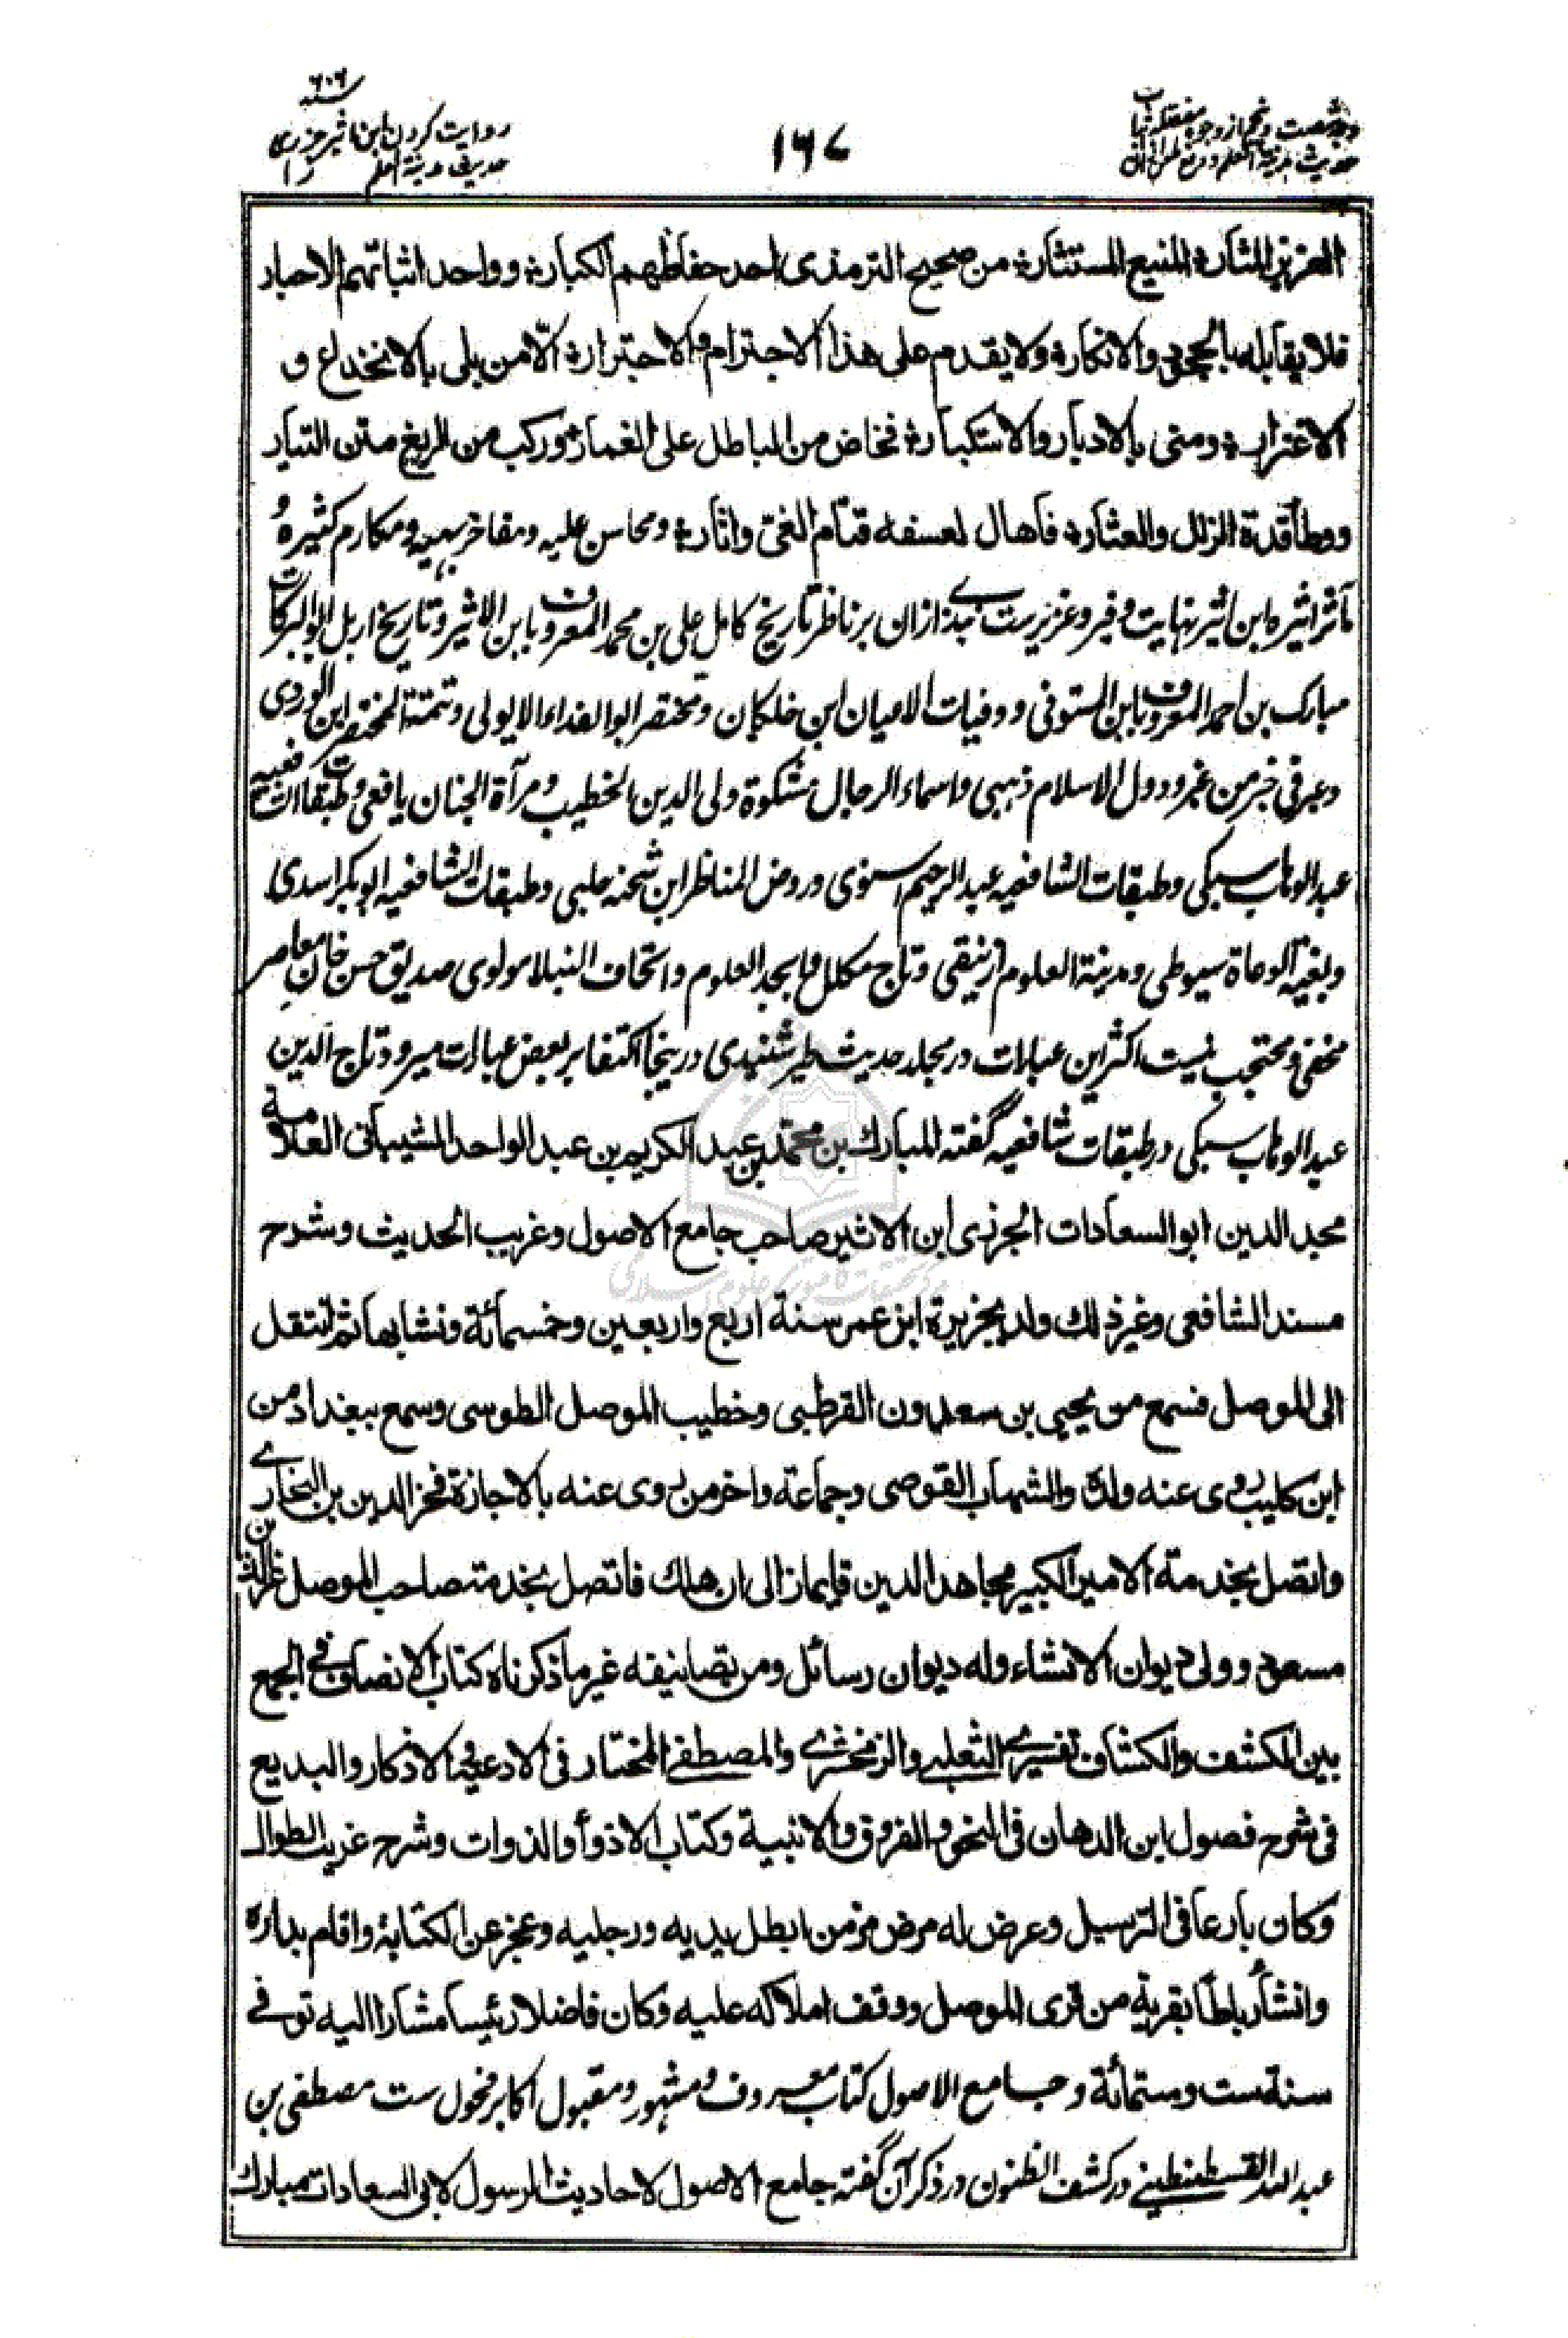 وجه شصت و پنجم از وجوه مفصله اثبات
حديث مدينة العلم و مزخ طعن ازان
١٦٧
سنه ٦٠٦
روايت كردن ابن اثير جزرى
حديث مدينة العلم را
العزيز المثار المنيع المستثار من صحيح الترمذى احد حفاظهم الكبار و واحد اثباتهم الاحبار
فلا يقابله بالجحود والانكار ولا يقدم على هذا الاجترام والاجترار الّا من بلى بالانخداع و
الاغترار و منى بالادبار والاستكبار فخاض من الباطل على الغمار و ركب من الزيغ متن التيار
و وطأ قدة الزلل والعثار فاهال لعسفه قتام الغىّ واثار و محاسن عليه و مفاخر بهيه و مكارم كثيره و
مآثر اثيره ابن اثير نهايت وفير و غزيرست نبذى ازان بر ناظر تاريخ كامل على بن محمد المعروف بابن الاثير و تاريخ اربل ابو البركات
مبارك بن احمد المعروف بابن المستوفى و وفيات الاعيان ابن خلكان و مختصر ابو الفداء الايوبى و تتمة المختصر ابن الوردى
و عبر فى خبر من غبر و دول الاسلام ذهبى و اسماء الرجال مشكوة ولى الدين الخطيب و مرآة الجنان يافعى و طبقات شافعيه
عبد الوهاب سبكى و طبقات الشافعيه عبد الرحيم اسنوى و روض المناظر ابن شحنه حلبى و طبقات الشافعيه ابو بكر اسدى
و بغية الوعاة سيوطى و مدينة العلوم ازنيقى و تاج مكلل و ابجد العلوم و اتحاف النبلا مولوى صديق حسن خان معاصر
مخفى و محتجب نيست اكثر اين عبارات در مجلد حديث طير شنيدى درينجا اكتفا بر بعض عبارات ميرود تاج الدين
عبد الوهاب سبكى در طبقات شافعيه گفته المبارك بن محمد بن عبد الكريم بن عبد الواحد الشيبانى العلامة
مجد الدين ابو السعادات الجزرى ابن الاثير صاحب جامع الاصول و غريب الحديث و شرح
مسند الشافعى و غير ذلك ولد بجزيرة ابن عمر سنة اربع واربعين وخمسمائة و نشا بها ثم انتقل
الى الموصل فسمع من يحيى بن سعدون القرطبى و خطيب الموصل الطوسى وسمع ببغداد من
ابن كليب روى عنه ولده والشهاب القوصى وجماعة واخر من روى عنه بالاجازة فخر الدين بن البخارى
واتصل بخدمة الامير الكبير مجاهد الدين قايماز الى ان هلك فاتصل بخدمة صاحب الموصل عز الدين
مسعود و ولى ديوان الانشاء وله ديوان رسائل ومن تصانيفه غير ما ذكرناه كتاب الانصاف فى الجمع
بين الكشف والكشاف تفسيرى الثعلبى والزمخشرى والمصطفى المختار فى الادعية والاذكار والبديع
فى شرح فصول ابن الدهان فى النحو والفروق والابنية وكتاب الاذواء والذوات وشرح غريب الطوال
وكان بارعا فى الترسيل وعرض له مرض مزمن ابطل يديه ورجليه وعجز عن الكتابة واقام بداره
وانشأ رباطا بقرية من قرى الموصل ووقف املاكه عليه وكان فاضلا رئيسا مشارا اليه توفى
سنة ست وستمائة و جامع الاصول كتاب معروف و مشهور و مقبول اكابر فحول ست مصطفى بن
عبد الله القسطنطينى در كشف الظنون در ذكر آن گفته جامع الاصول لاحاديث الرسول لابى السعادات مبارك
مركز تحقيقات كامپيوتري علوم اسلامي